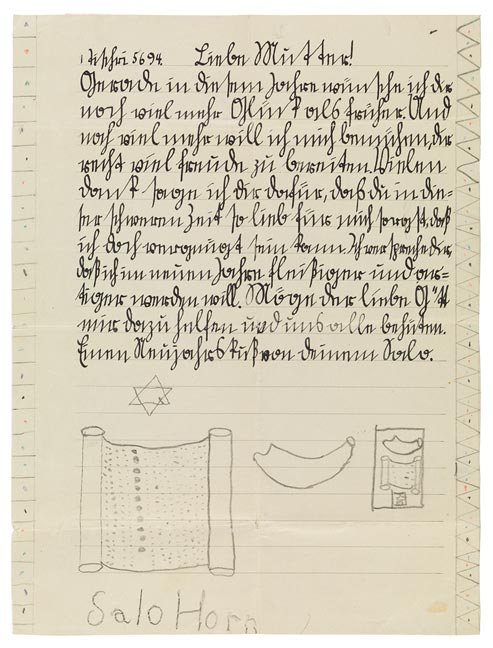 1 Tischri 5694. Liebe Mutter!
Gerade in diesem Jahre wünsche ich dir
noch viel mehr Glück als früher. Und
noch viel mehr will ich mich bemühen, dir
recht viel Freude zu bereiten. Vielen
Dank sage ich dir dafür, daß du in die-
ser schweren Zeit so lieb für mich sorgst, daß
ich doch vergnügt sein kann. Ich verspreche dir,
daß ich im neuen Jahre fleißiger und ar-
tiger werden will. Möge der liebe G"tt
mir dazu helfen und uns alle behüten.
Einen Neujahrskuß von deinem Salo.
Salo Horn